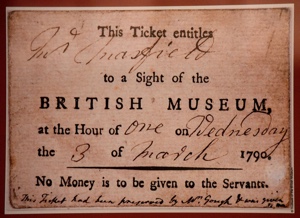 This Ticket entitles
to a Sight of the
BRITISH MUSEUM,
at the Hour of one on Wednesday
the 3 of March 1790.
No Money is to be given to the Servants.
This Ticket had been preserved by Mr. Gough & was given